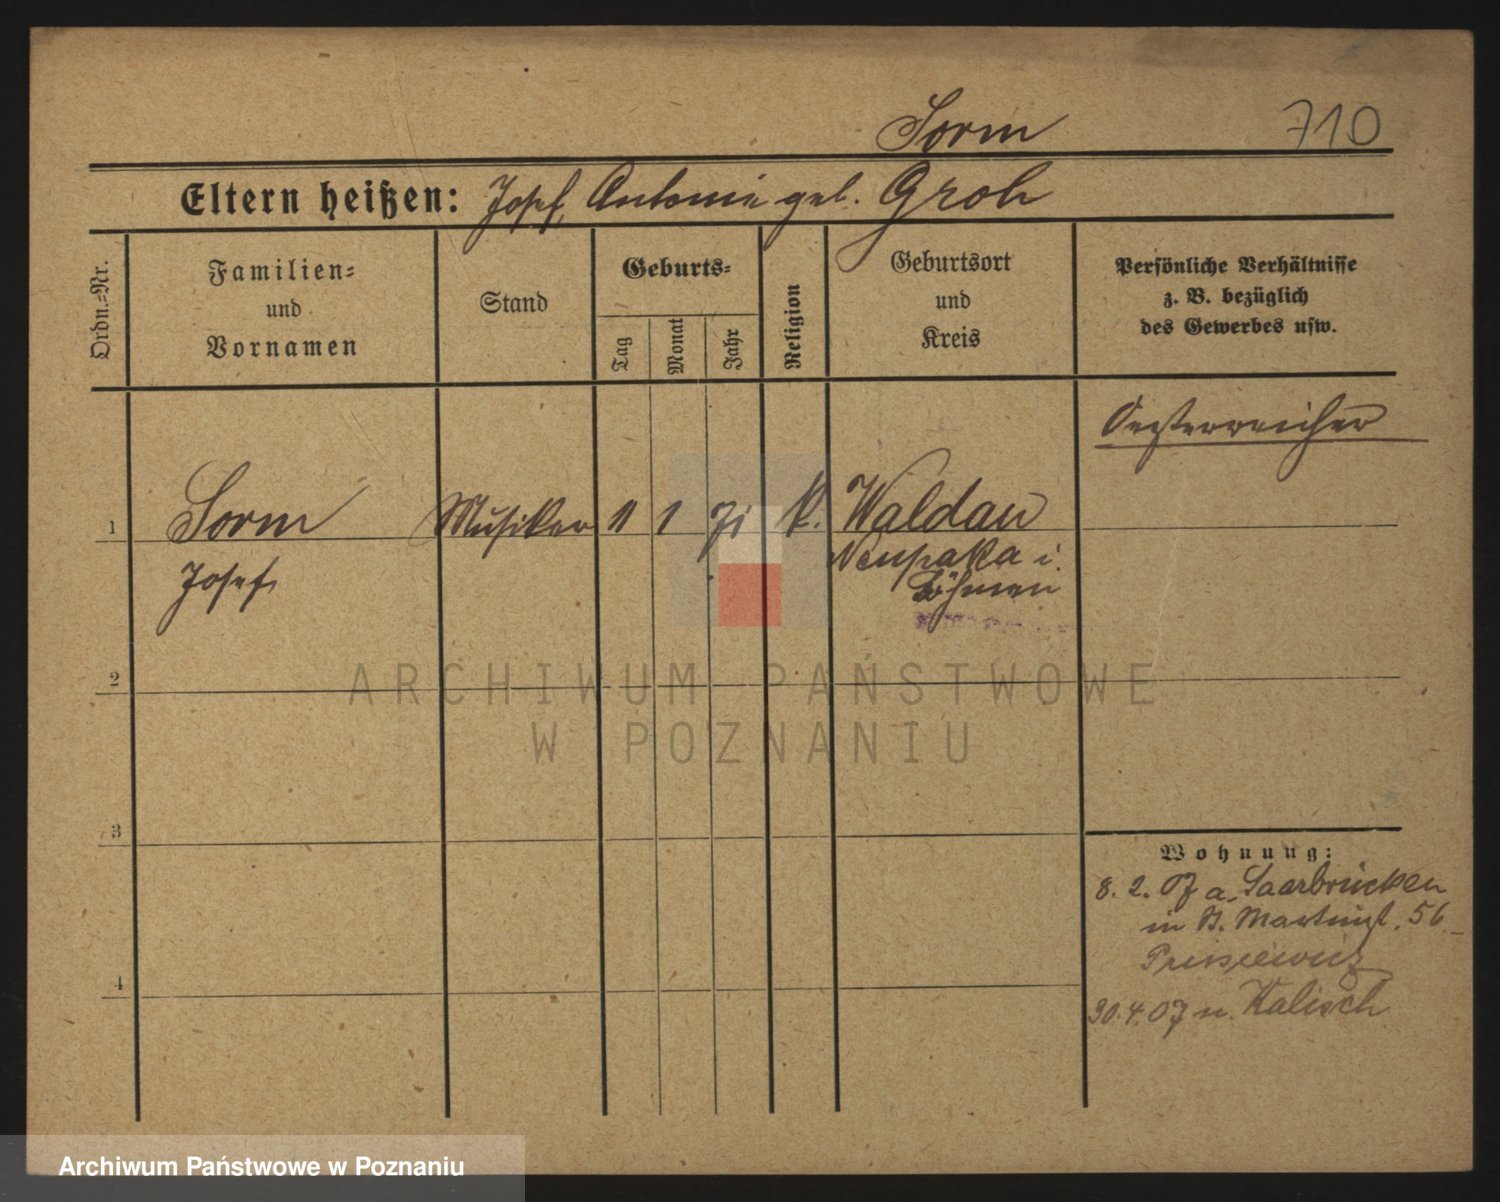 Sorm 710
Eltern heißen: Josef, Antonie geb. Groh
Ordn.-Nr.
Familien-
und
Vornamen
Stand
Geburts-
Tag
Monat
Jahr
Religion
Geburtsort
und
Kreis
Persönliche Verhältnisse
z. B. bezüglich
des Gewerbes usw.
Oesterreicher
1 Sorm Musiker 11 1 71 k. Waldau
Josef
Neupaka i.
Böhmen
2
ARCHIWUM PAŃSTWOWE
W POZNANIU
3
Wohnung:
8. 2. 07 a. Saarbrücken
in St. Martinst. 56
4
30. 4. 07 n. Kalisch
Archiwum Państwowe w Poznaniu